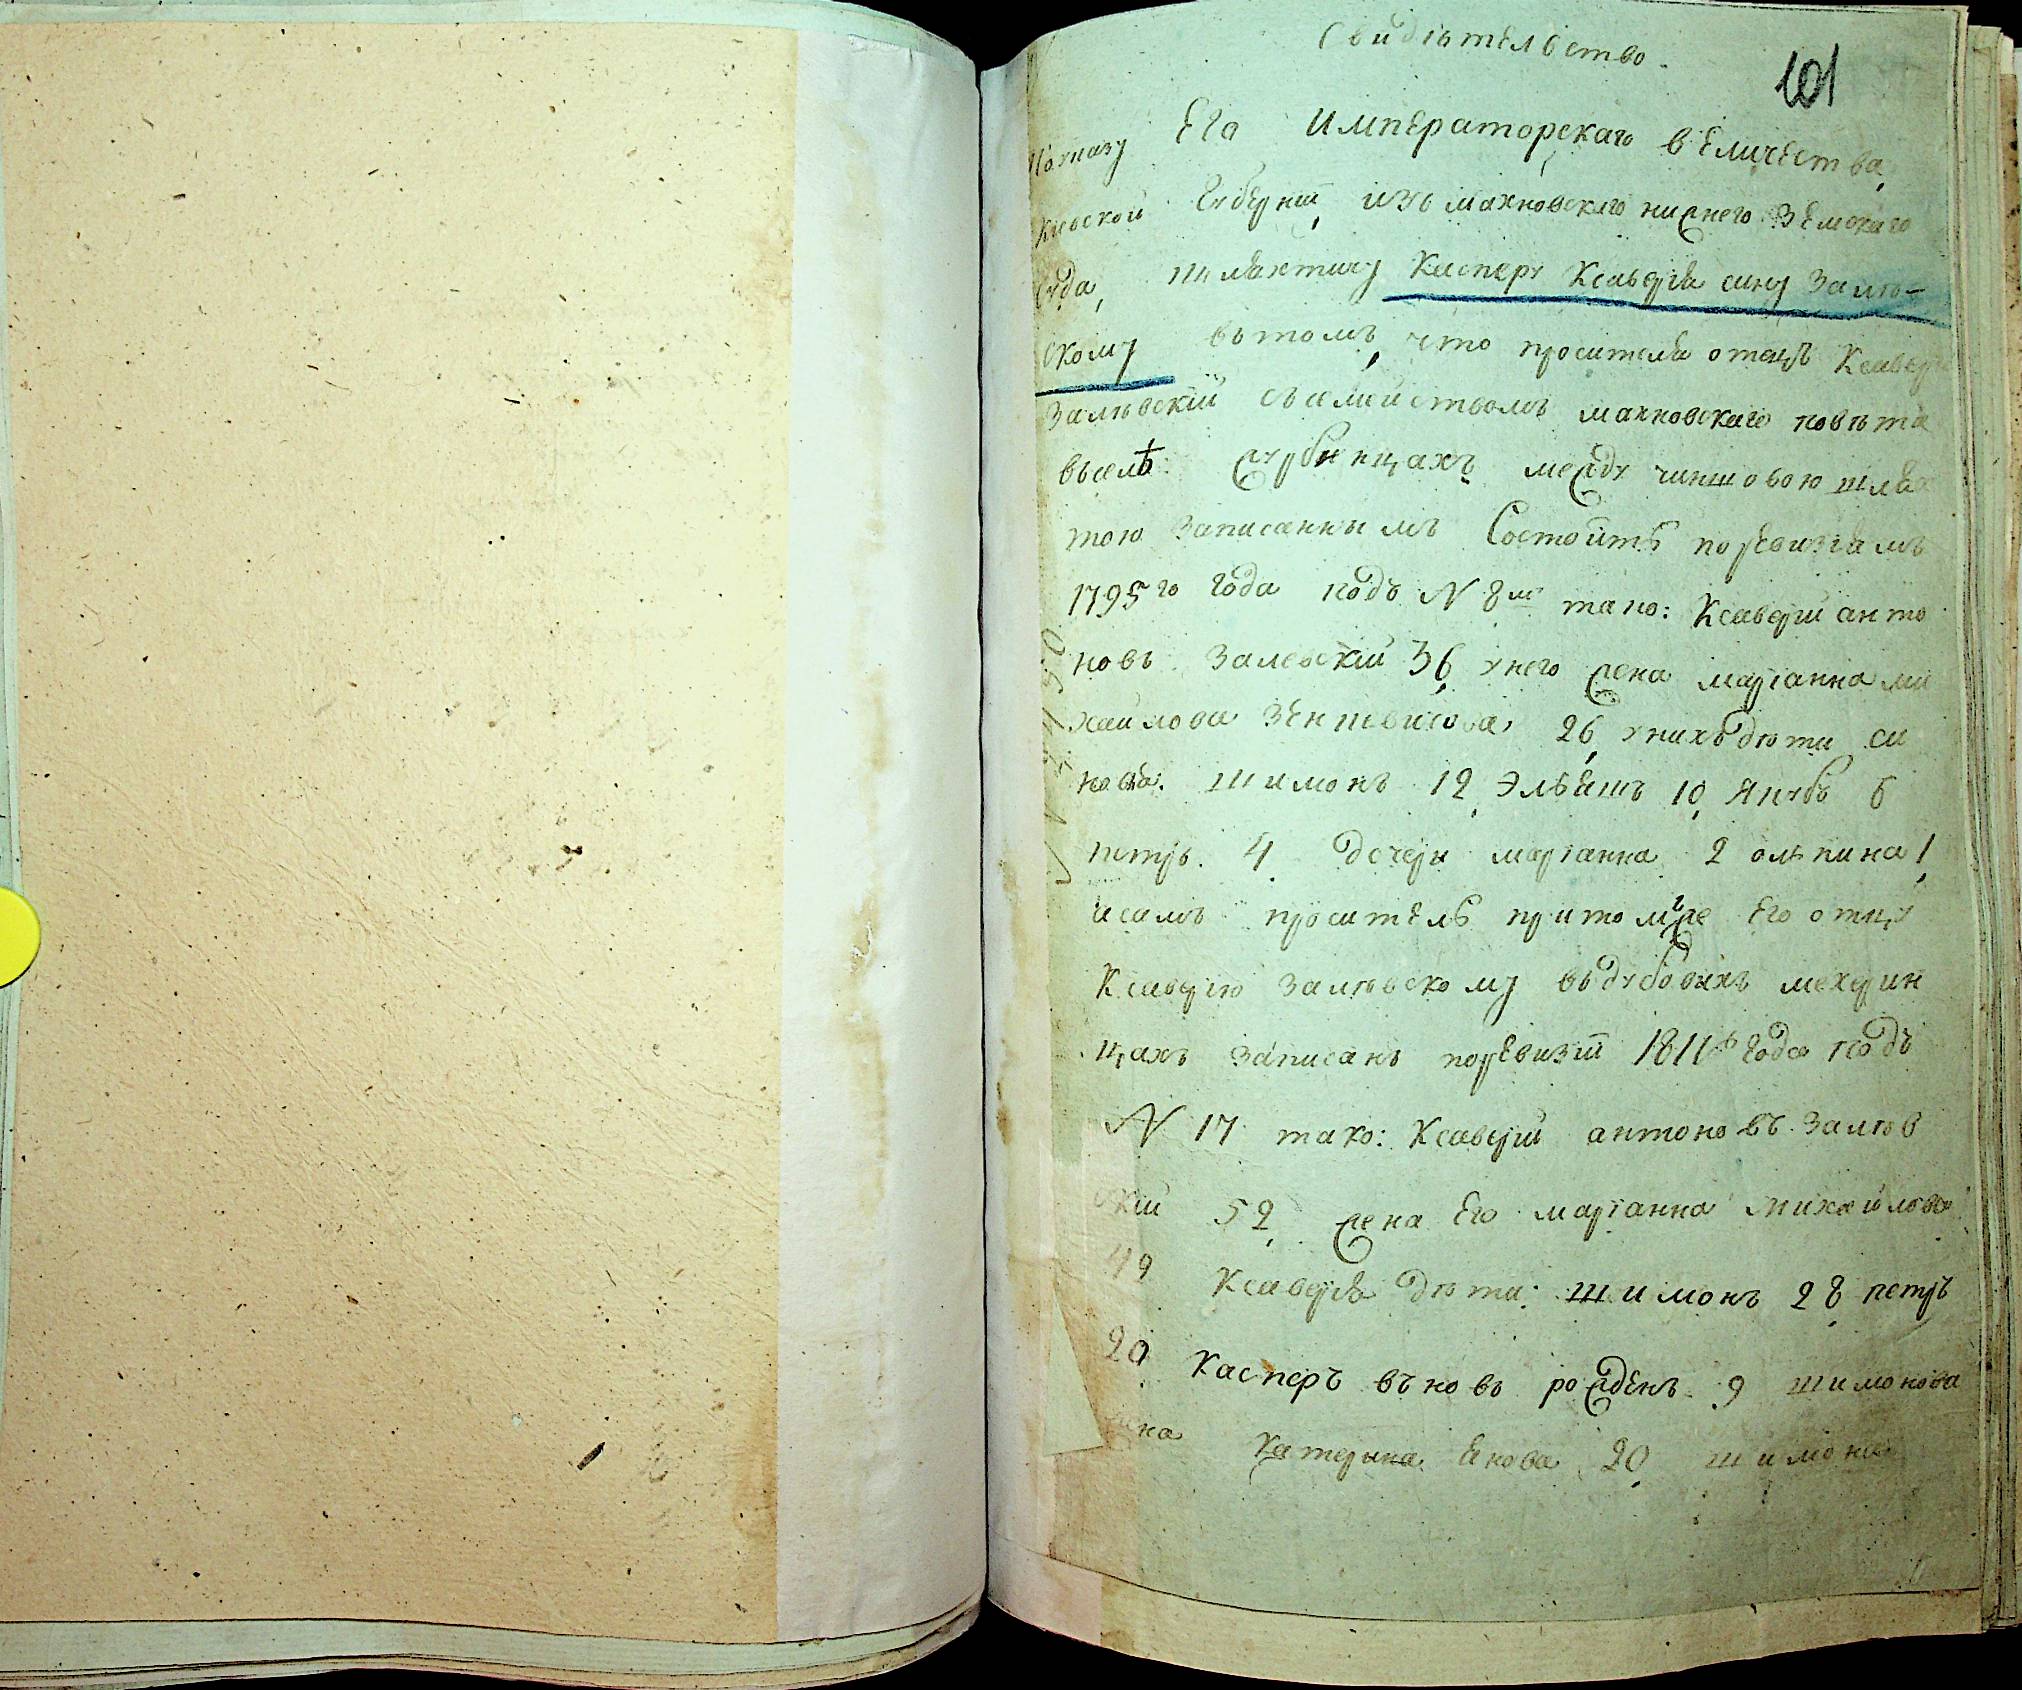 Свидѣтелство
101
По указу Его Императорскаго величества,
киевской Губернїи, изъ махновскаго нижнего Земскаго
Суда, шляхтичу Касперу Ксаверїя сину Залѣв-
скому въ томъ, что просителя отецъ Ксаверїй
Залѣвскїй съ семействомъ махновскаго повѣта
въ селѣ: между чиншовою шлях
тою записаннымъ Состоитъ по ревизїямъ
1795го года подъ N 8мъ тако: Ксаверїй анто
новъ Залевскїй 36, у него жена марїанна ми
хайлова 26, у нихъ дѣти си
новья: шимонъ 12, Эльяшъ 10, Якубъ 6
петръ. 4. дочери марїанна 2 1,
а самъ проситель при томъ же Его отцу
Ксаверїю Залѣвскому въ дубовыхъ махарин
цахъ записанъ по ревизїи 1811го года подъ
N 17 тако: Ксаверїй антоновъ Залѣв
скїй 52, жена Его марїанна михайлова
49 Ксаверїя дѣти: шимонъ 28, петръ
20 Касперъ въновь рожденъ 9 шимонова
жена Катерина Якова 20, шимона